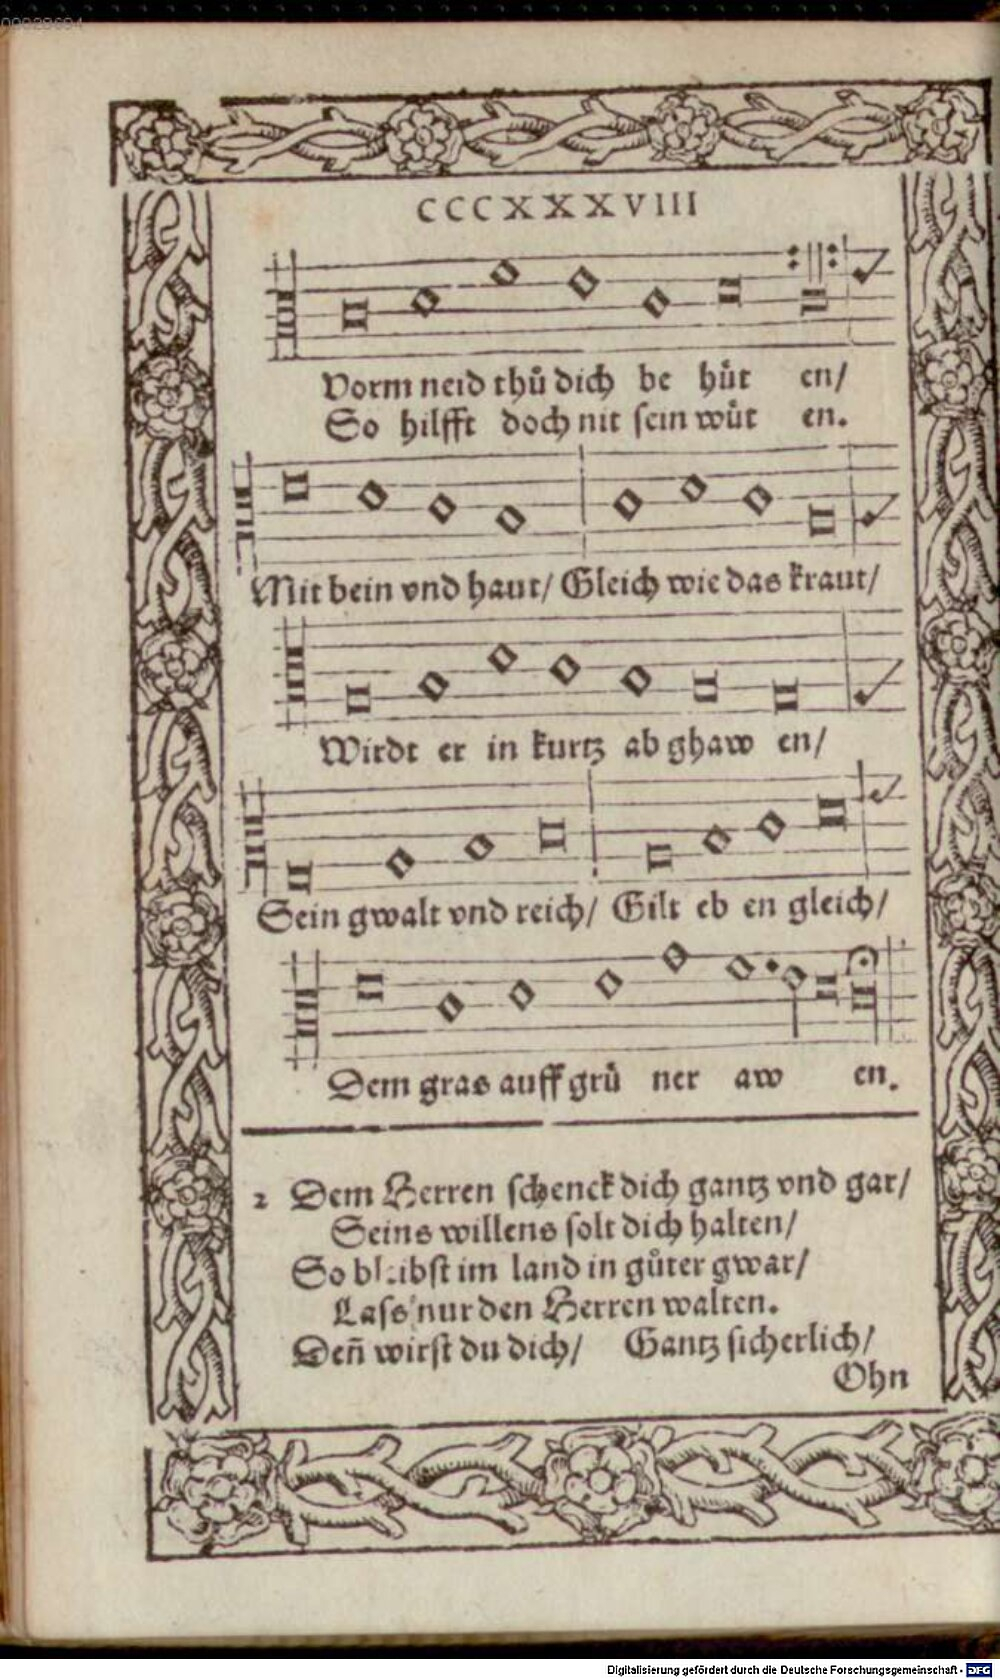 00029694
CCCXXXVIII
Vorm neid thuͦ dich be huͤt en/
So hilfft doch nit sein wuͤt en.
Mit bein vnd haut/ Gleich wie das kraut/
Wirdt er in kurtz ab ghaw en/
Sein gwalt vnd reich/ Gilt eb en gleich/
Dem gras auff gruͤ ner aw en.
2 Dem Herren schenck dich gantz vnd gar/
Seins willens solt dich halten/
So bleibst im land in guͦter gwar/
Lass nur den Herren walten.
Deñ wirst du dich/ Gantz sicherlich/
Ohn
Digitalisierung gefördert durch die Deutsche Forschungsgemeinschaft - DFG